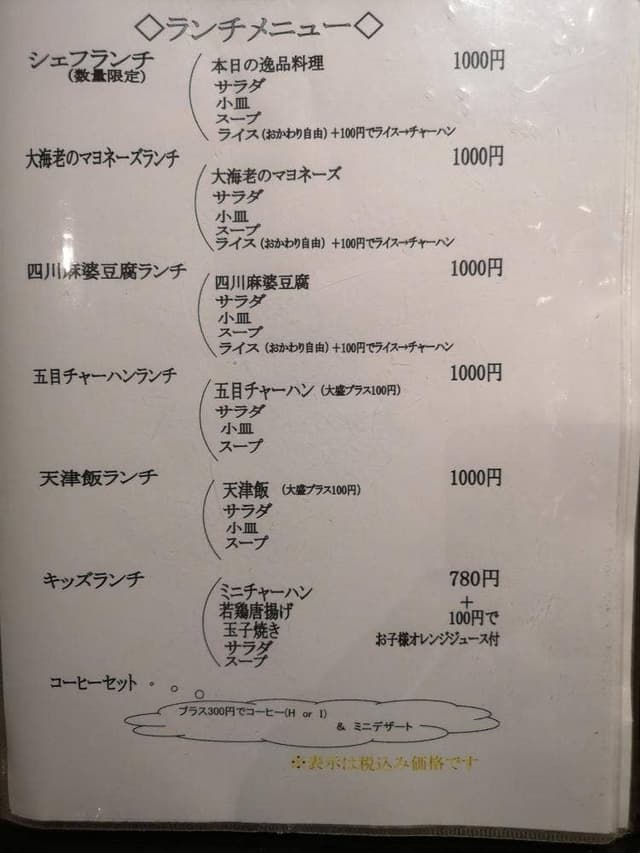 ◇ランチメニュー◇
シェフランチ
(数量限定)
本日の逸品料理 1000円
サラダ
小皿
スープ
ライス (おかわり自由) +100円でライス→チャーハン
大海老のマヨネーズランチ 1000円
大海老のマヨネーズ
サラダ
小皿
スープ
ライス (おかわり自由) +100円でライス→チャーハン
四川麻婆豆腐ランチ 1000円
四川麻婆豆腐
サラダ
小皿
スープ
ライス (おかわり自由) +100円でライス→チャーハン
五目チャーハンランチ 1000円
五目チャーハン (大盛プラス100円)
サラダ
小皿
スープ
天津飯ランチ 1000円
天津飯 (大盛プラス100円)
サラダ
小皿
スープ
キッズランチ 780円
ミニチャーハン
若鶏唐揚げ
玉子焼き
サラダ
スープ
+
100円で
お子様オレンジジュース付
コーヒーセット
プラス300円でコーヒー(H or I)
& ミニデザート
※表示は税込み価格です